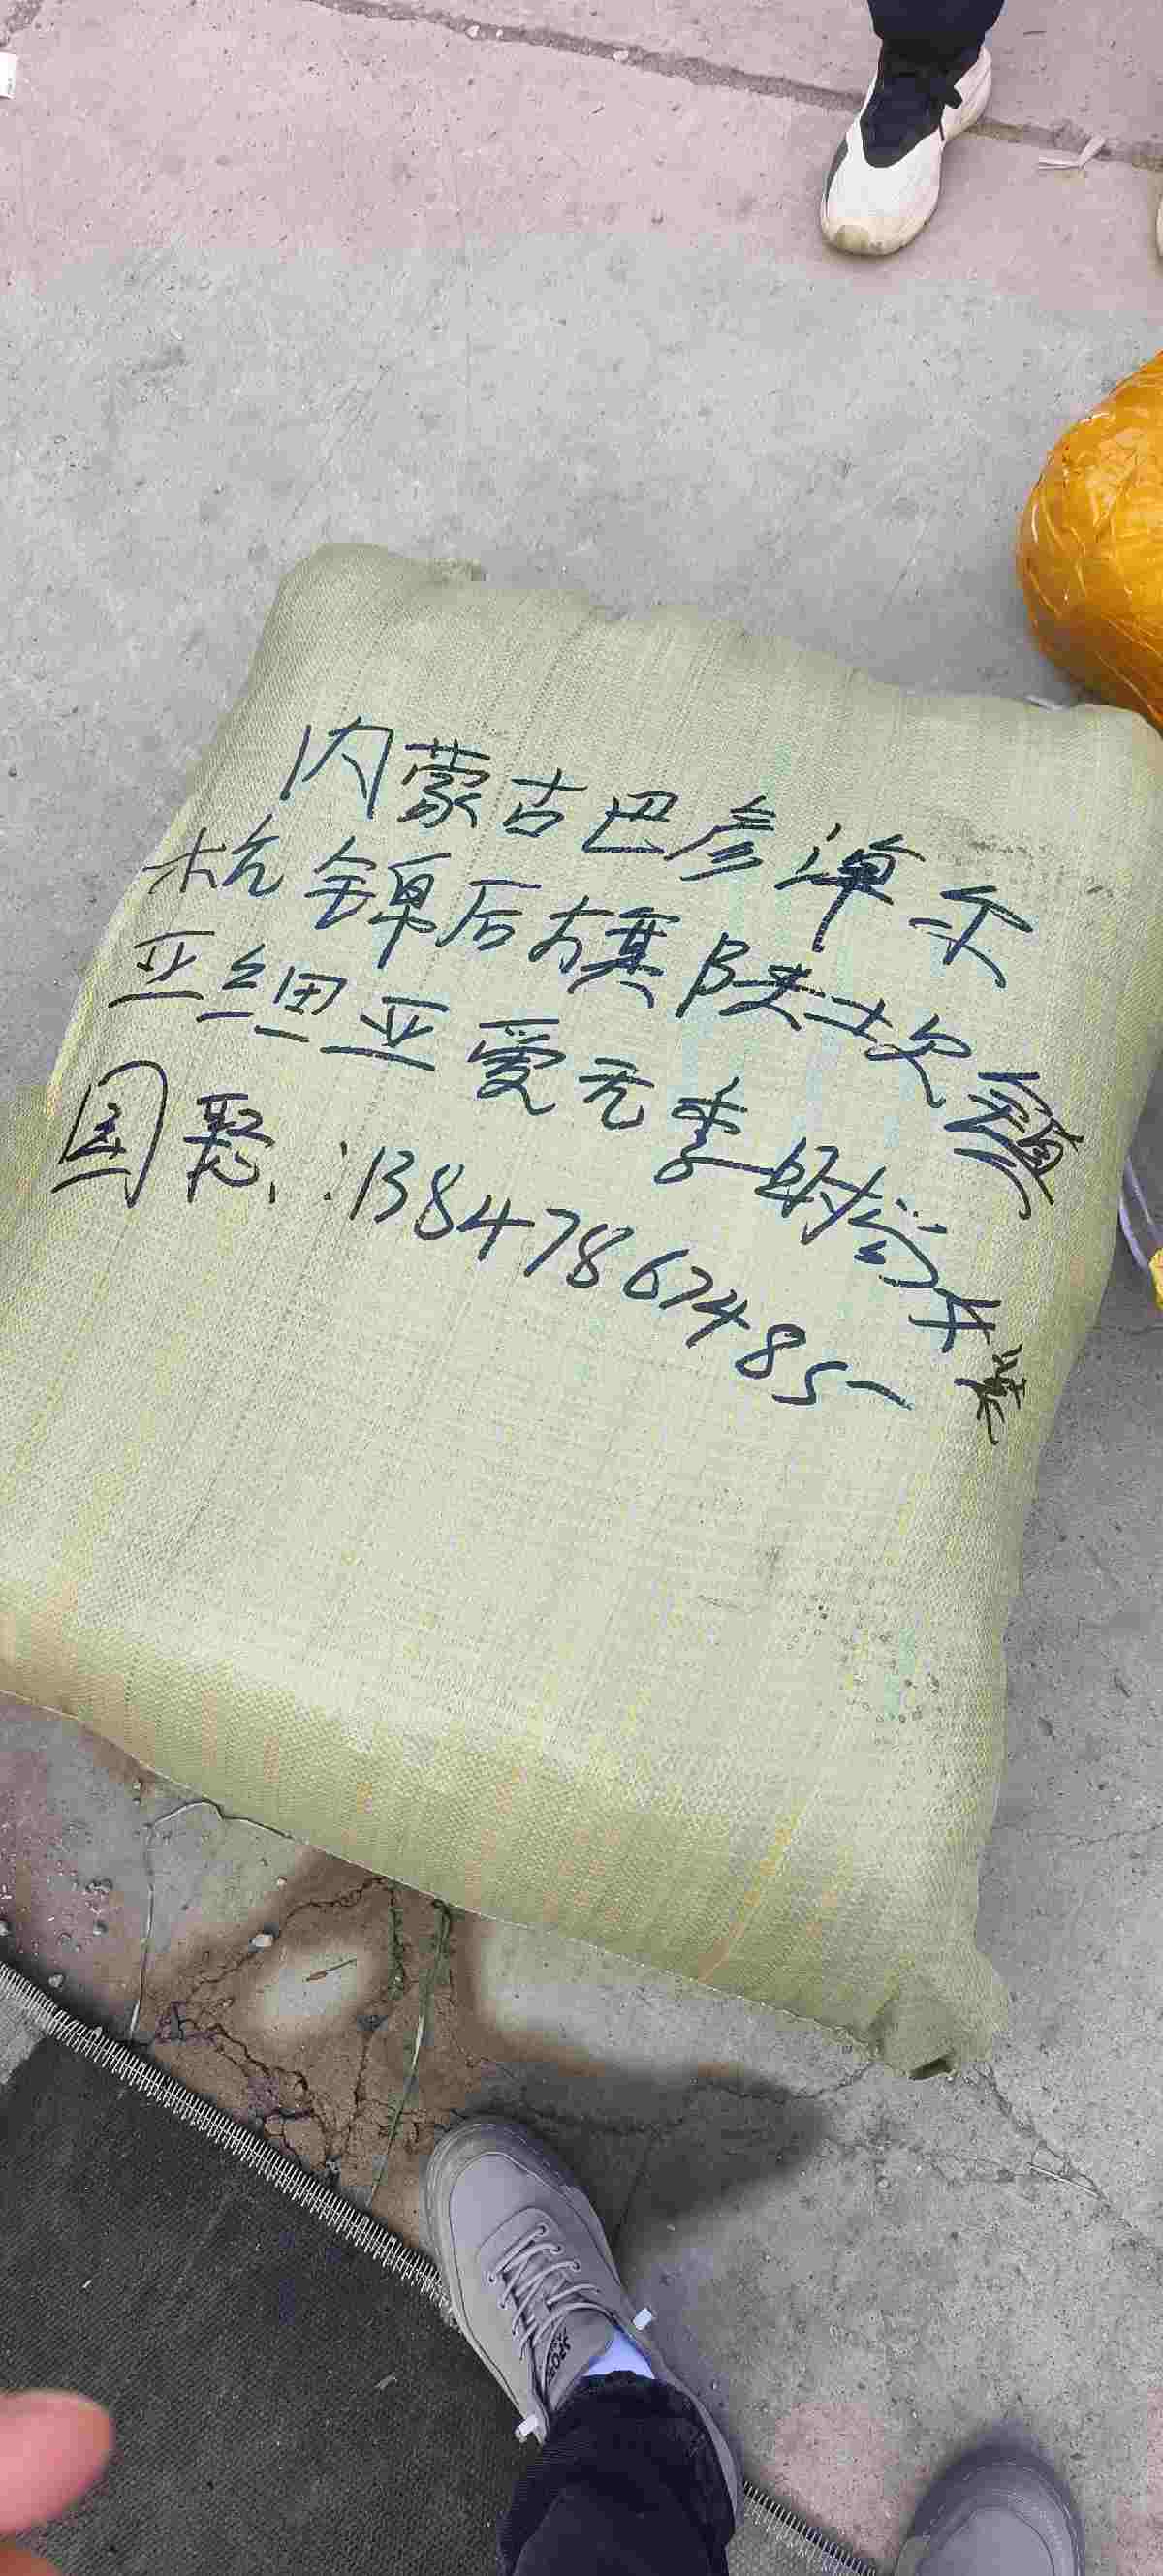 内蒙古巴彦淖尔
杭锦后旗陕坝镇
亚细亚爱无季时尚千装
国聪:13847867485